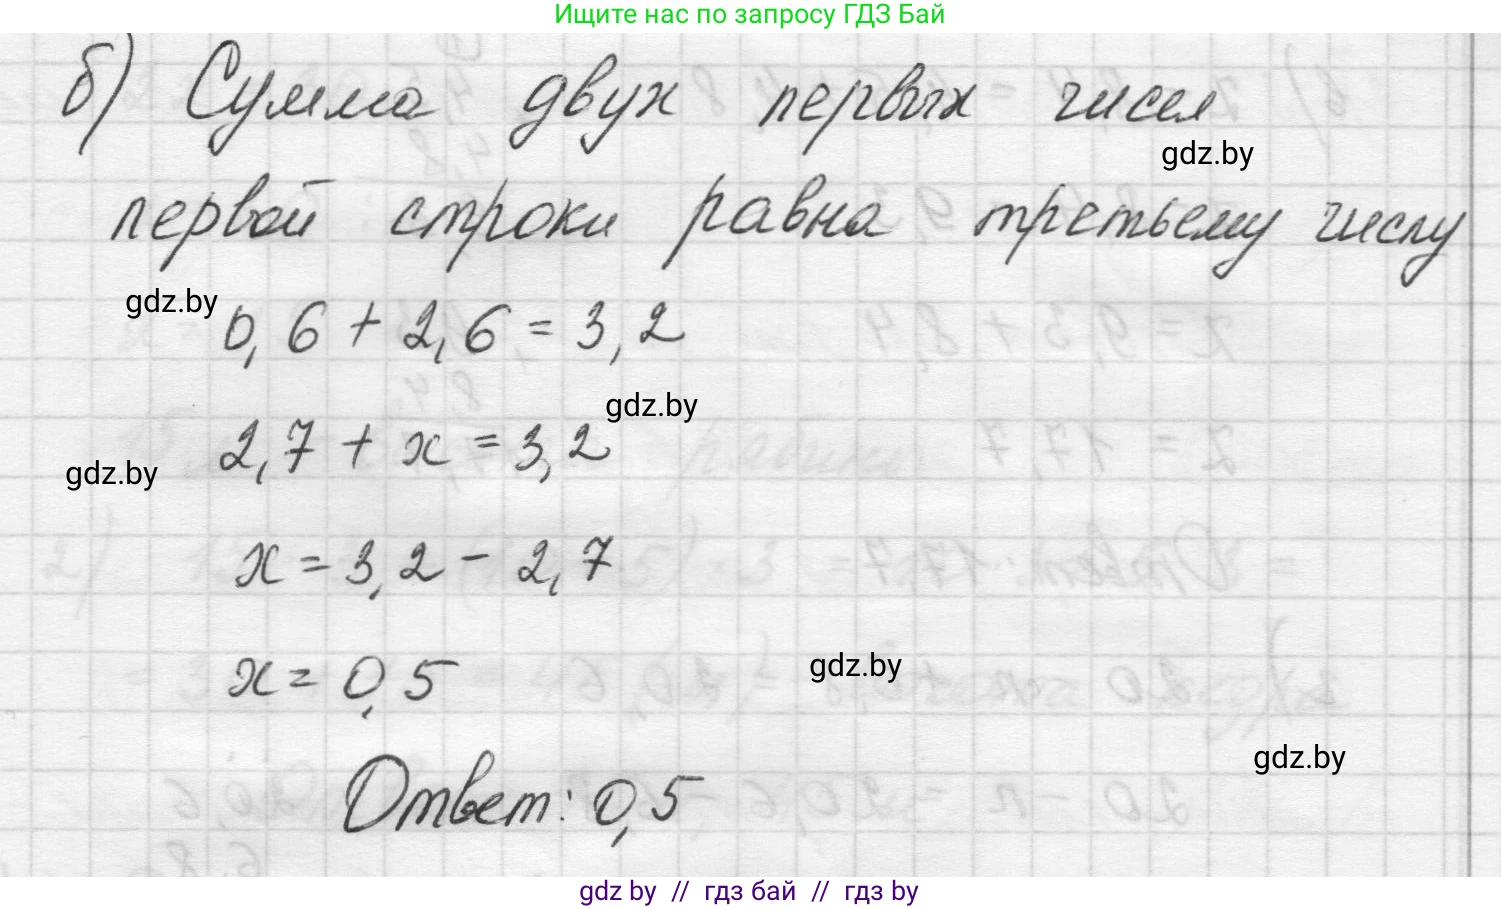 Ищите нас по запросу ГДЗ Бай
б) Сумма двух первых чисел
gdz.by
первой строки равна третьему числу
gdz.by
0,6 + 2,6 = 3,2
gdz.by
2,7 + x = 3,2
gdz.by
x = 3,2 - 2,7
x = 0,5
gdz.by
gdz.by
Ответ: 0,5
gdz by // гдз бай // гдз by